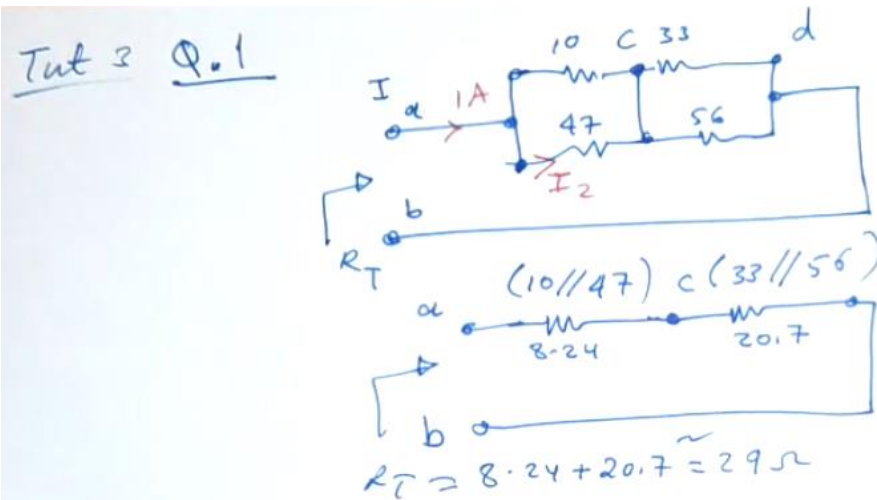 Tut 3 Q.1
10 C 33 d
I a 1A
47 56
I2
b
RT
(10//47) c (33//56)
a
8.24 20.7
b
RT = 8.24 + 20.7 ≅ 29 Ω